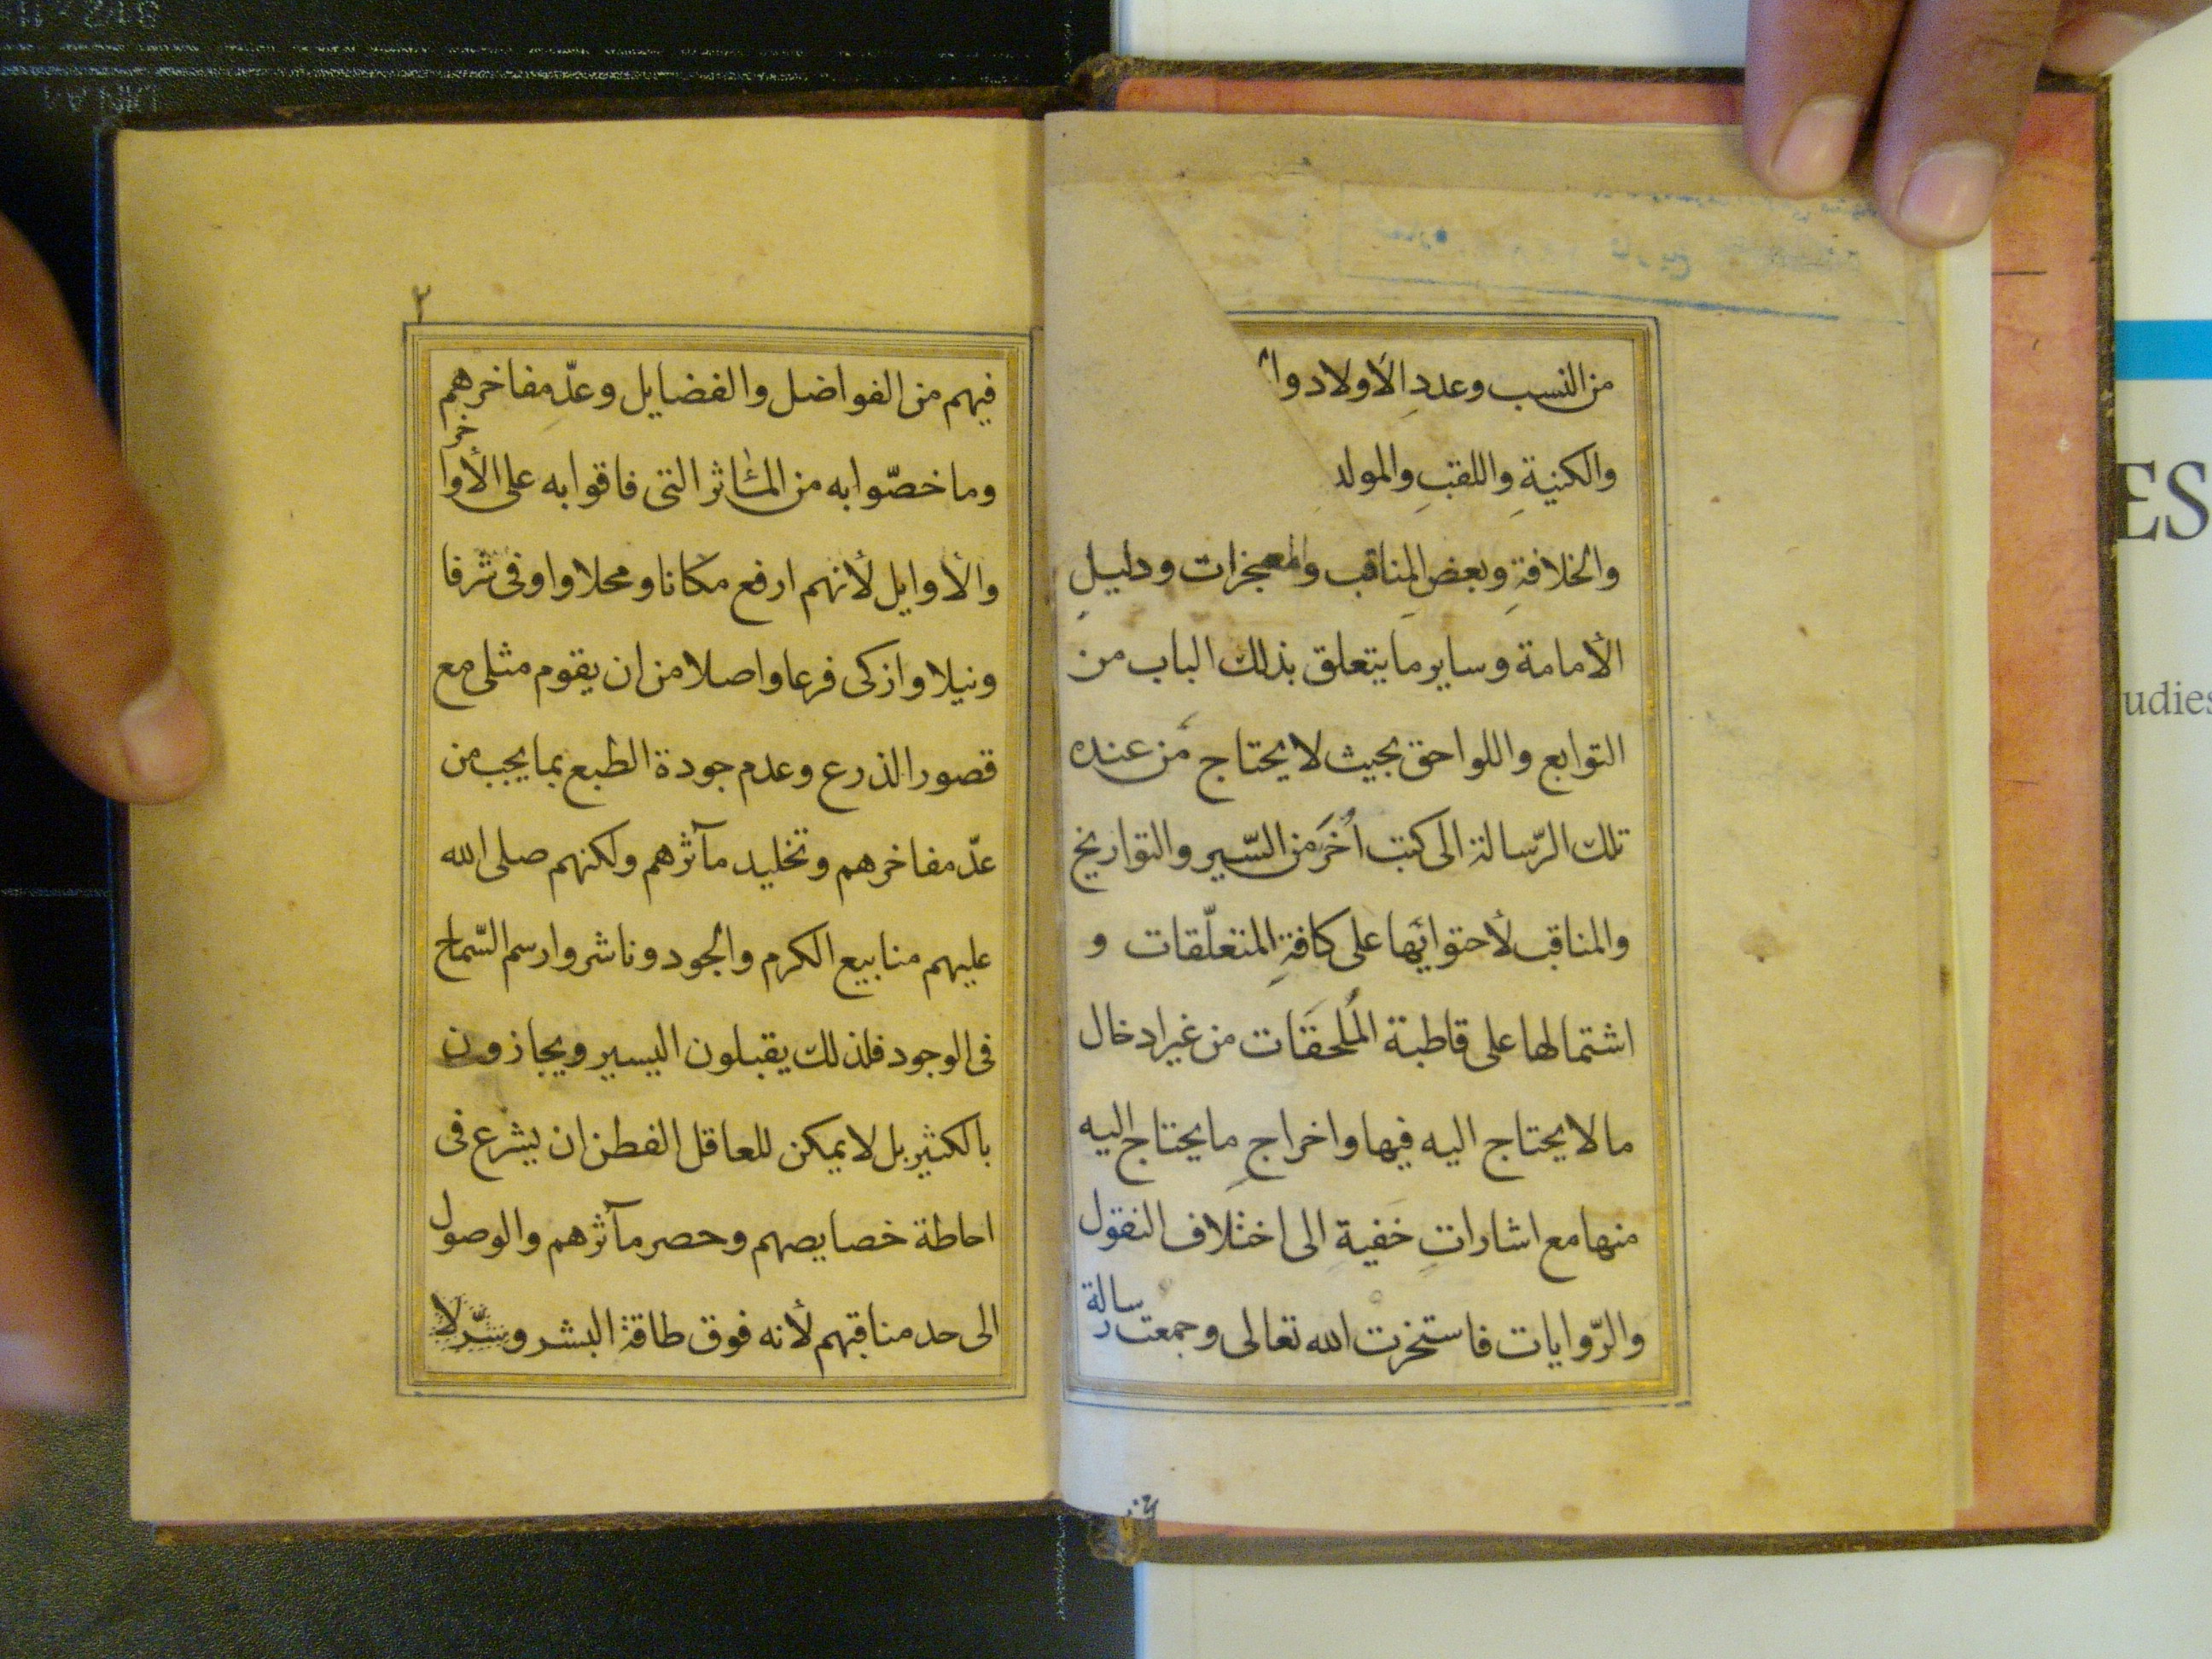 من النسب وعددِ الأولاد وا
والكنيةِ واللقبِ والمولد
والخلافةِ وبعضِ المناقب والمعجزات ودليلِ
الأمامة وساير ما يتعلق بذلك الباب من
التوابع واللواحق بحيث لا يحتاج مَن عنده
تلك الرّسالة الى كتب اُخَر من السّير والتواريخ
والمناقب لأحتوائها على كافةِ المتعلّقات و
اشتمالها على قاطبة المُلحقَات من غير ادخال
ما لا يحتاج اليه فيها واخراجِ ما يحتاج اليه
منها مع اشاراتِ خفية الى اختلاف النقول
والرّوايات فاستخرت الله تعالى وجمعت رسالة
٢
فيهم من الفواضل والفضايل وعدّ مفاخرهم
وما خصّوا به من المآثر التى فاقوا به على الأواخر
والأوايل لأنهم ارفع مكانا ومحلا واوفى شرفا
ونيلا وازكى فرعا واصلا من ان يقوم مثلى مع
قصور الذرع وعدم جودة الطبع بما يجب من
عدّ مفاخرهم وتخليد مآثرهم ولكنهم صلى الله
عليهم منابيع الكرم والجود وناشروا رسم السّماح
فى الوجود فلذلك يقبلون اليسير ويجازون
بالكثير بل لا يمكن للعاقل الفطن ان يشرع فى
احاطة خصايصهم وحصر مآثرهم والوصول
الى حد مناقبهم لأنه فوق طاقة البشر وسرّ لا
ES
udies